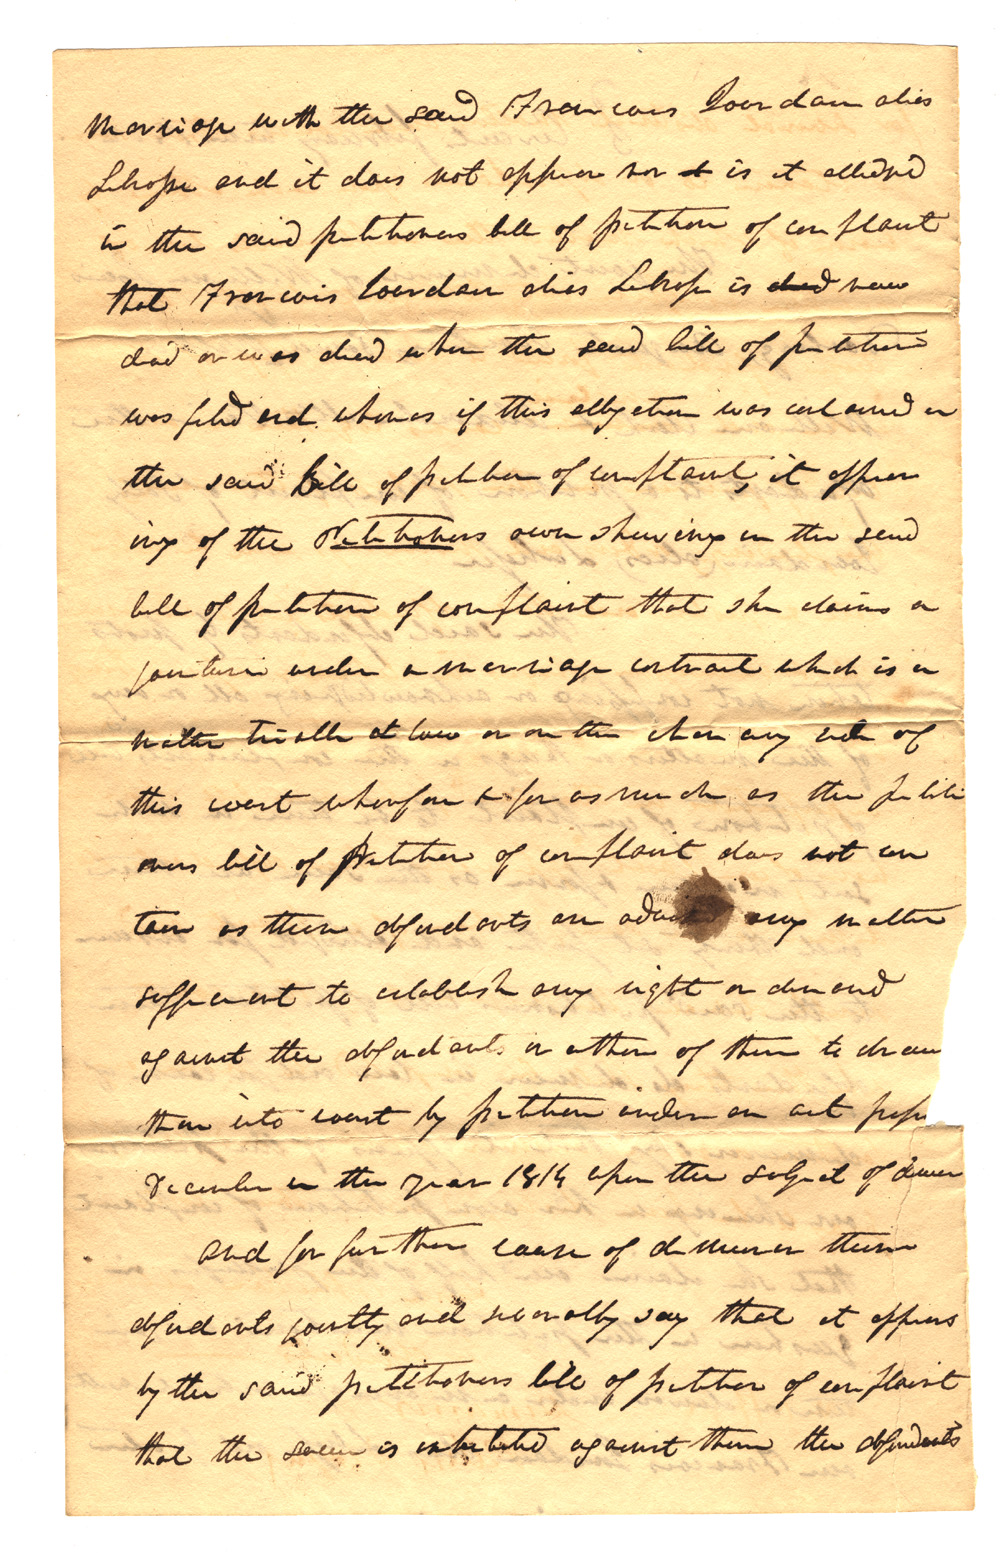 Marriage with the said Francois Jourdain alies
Lehope and it does not appear nor is it alledged
in the said petitioners bill of petition of complaint
that Francois Jourdan alies Lehope is now
dead or was dead when the said bill of petition
was filed and whereas if this allegation was contained in
the said bill of petition of complaint, it appear
ing of the Petitioners own shewing in the said
bill of petition of complaint that she claims a
jointure under a marriage contract which is a
matter triable at law or on the chancery side of
this court wherefore & for as much as the petiti
oners bill of petition of complaint does not con
tain as these defendants are advised any matter
sufficient to establish any right or demand
against the defendants or either of them to draw
them into court by petition under an act
December in the year 1814 upon the subject of dower
and for further cause of demurrer these
defendants jointly and severally say that it appears
by the said petitioners bill of petition of complaint
that the same is exhibited against them the defendants